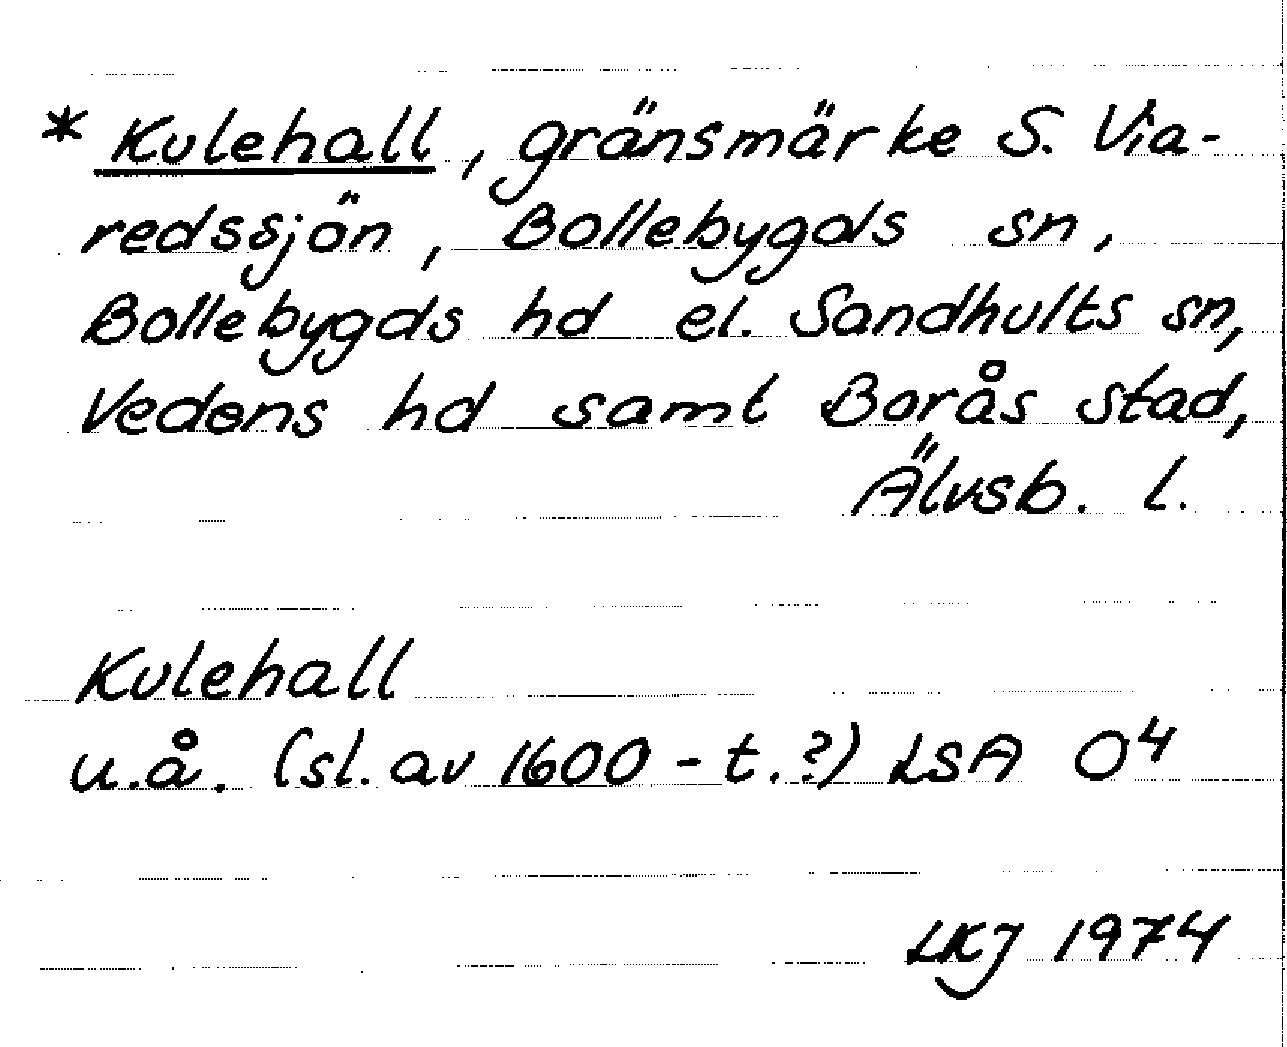 * Kulehall, gränsmärke S. Via-
redssjön, Bollebygds sn,
Bollebygds hd el. Sandhults sn,
Vedens hd samt Borås stad,
Älvsb. l.
Kulehall
u.å. (sl. av 1600-t.?) LSA O⁴
LKJ 1974